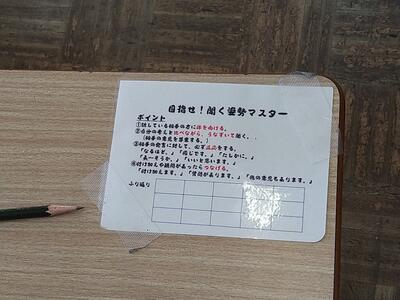 目指せ！聞く姿勢マスター
ポイント
①話している相手の方に体を向ける。
②自分の考えと比べながら、うなずいて聞く。
（相手の意見を尊重する。）
③相手の発言に対して、必ず反応をする。
「なるほど。」「同じです。」「たしかに。」
「あーそうか。」「いいと思います。」
④付け加えや質問があったらつなげる。
「付け加えます。」「質問があります。」「他の意見もあります。」
ふり返り